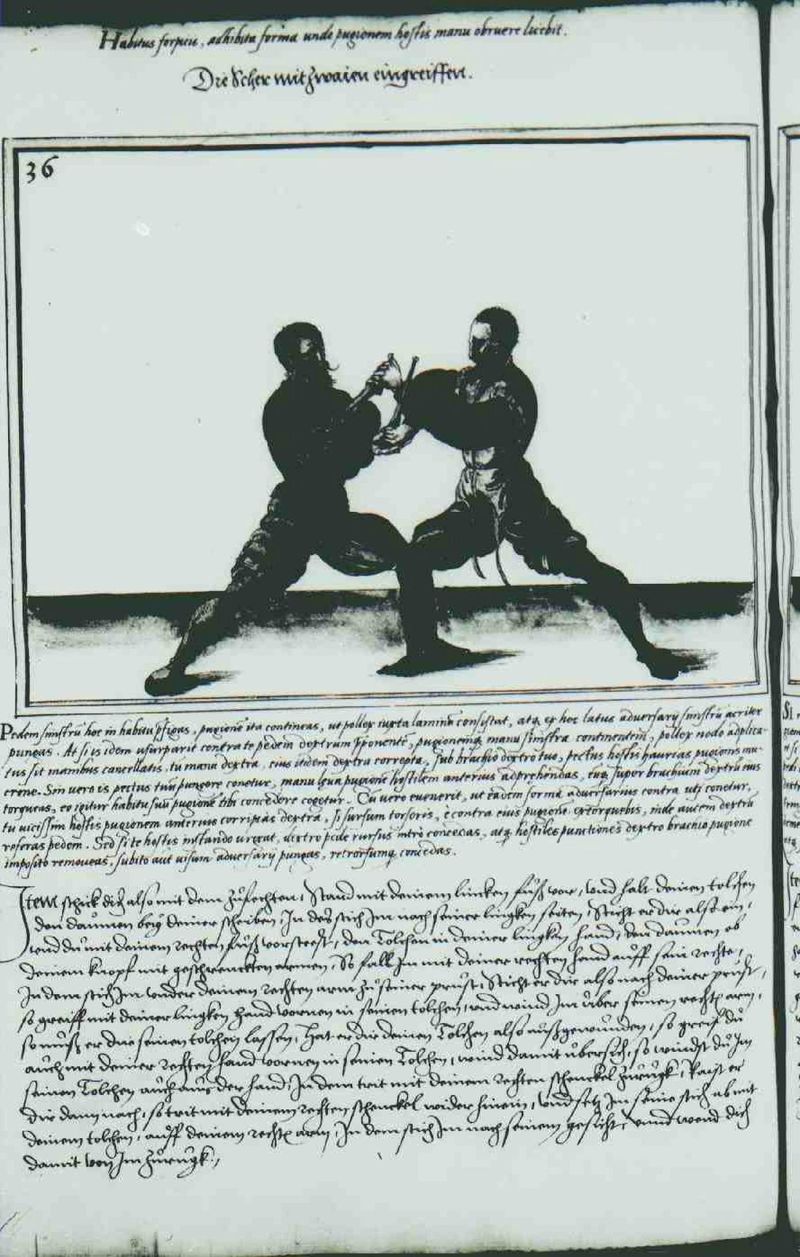 Habitus forpicis, adhibita forma unde pugionem hostis manu obruere licebit.
Die Scher mit zwaien eingreiffen.
36
Pedem sinistrũ hoc in habitu pſigas, pugionẽ ita contineas, ut pollex iuxta laminã consistat, atq ex hoc latus adversarij sinistrũ acriter
pungas. At si is idem usurparit contra te pedem dextrum pponentẽ, pugionemq manu sinistra continentem, pollex nodo adplica-
tus sit manibus cancellatis, tu manu dextra, eius itidem dextra correpta, sub brachio dextro tuo, pectus hostis haurias pugionis mu-
crone. Sin vero is pectus tuũ pungere conetur, manu leua pugionẽ hostilem anterius adprehendas, eumq super brachium dextrũ eius
torqueas, eo igitur habitu suũ pugionẽ tibi concedere cogetur. Cũ vero evenerit, ut eadem forma adversarius contra te uti conetur,
tu vicissim hostis pugionem anterius corripias dextra, si sursum torseris, è contra eius pugionẽ extorquebis, inde autem dextrũ
referas pedem. Sed si te hostis instando urgeat, dextro pede rursus intrò concedas, atq hostiles punctiones dextro brachio pugione
imposito removeas, subito aut visum adversarij pungas, retrorsumq concedas.
Item schik dich also mit dem zufechten, Stand mit deinem lincken fuß vor, und halt deinen tolchen
den daumen beÿ deiner scheiben, In des stich Im nach seiner lingken seiten, Sticht er dir also ein,
und du mit deinem rechten fuß vorsteest, den Tolchen in deiner lingken hand, den daumen ob
deinem knopf mit geschrenckten armen, So fall Im mit deiner rechten hand auff sein rechte,
In dem stich Im under deinen rechten arm zu seiner prust, Sticht er dir also nach deiner prust,
so greiff mit deiner lingken hand vornen in seinen tolchen, und wind Im über seinen rechtn arm,
so muß er dir seinen tolchen lassen, Hat er dir deinen Tolchen also außgewunden, so greif du
auch mit deiner rechten hand vornen in seinen Tolchen, wind damit übersich, so windst du Im
seinen Tolchen auch aus der hand, In dem trit mit deinem rechten schenckel zurugk, Raist er
dir dann nach, so trit mit deinem rechten schenckel wider hinein, und setz Im seine stich ab mit
deinem tolchen, auff deinem rechtn arm, In dem stich Im nach seinem gesicht, und wend dich
damit von Im zurugk.